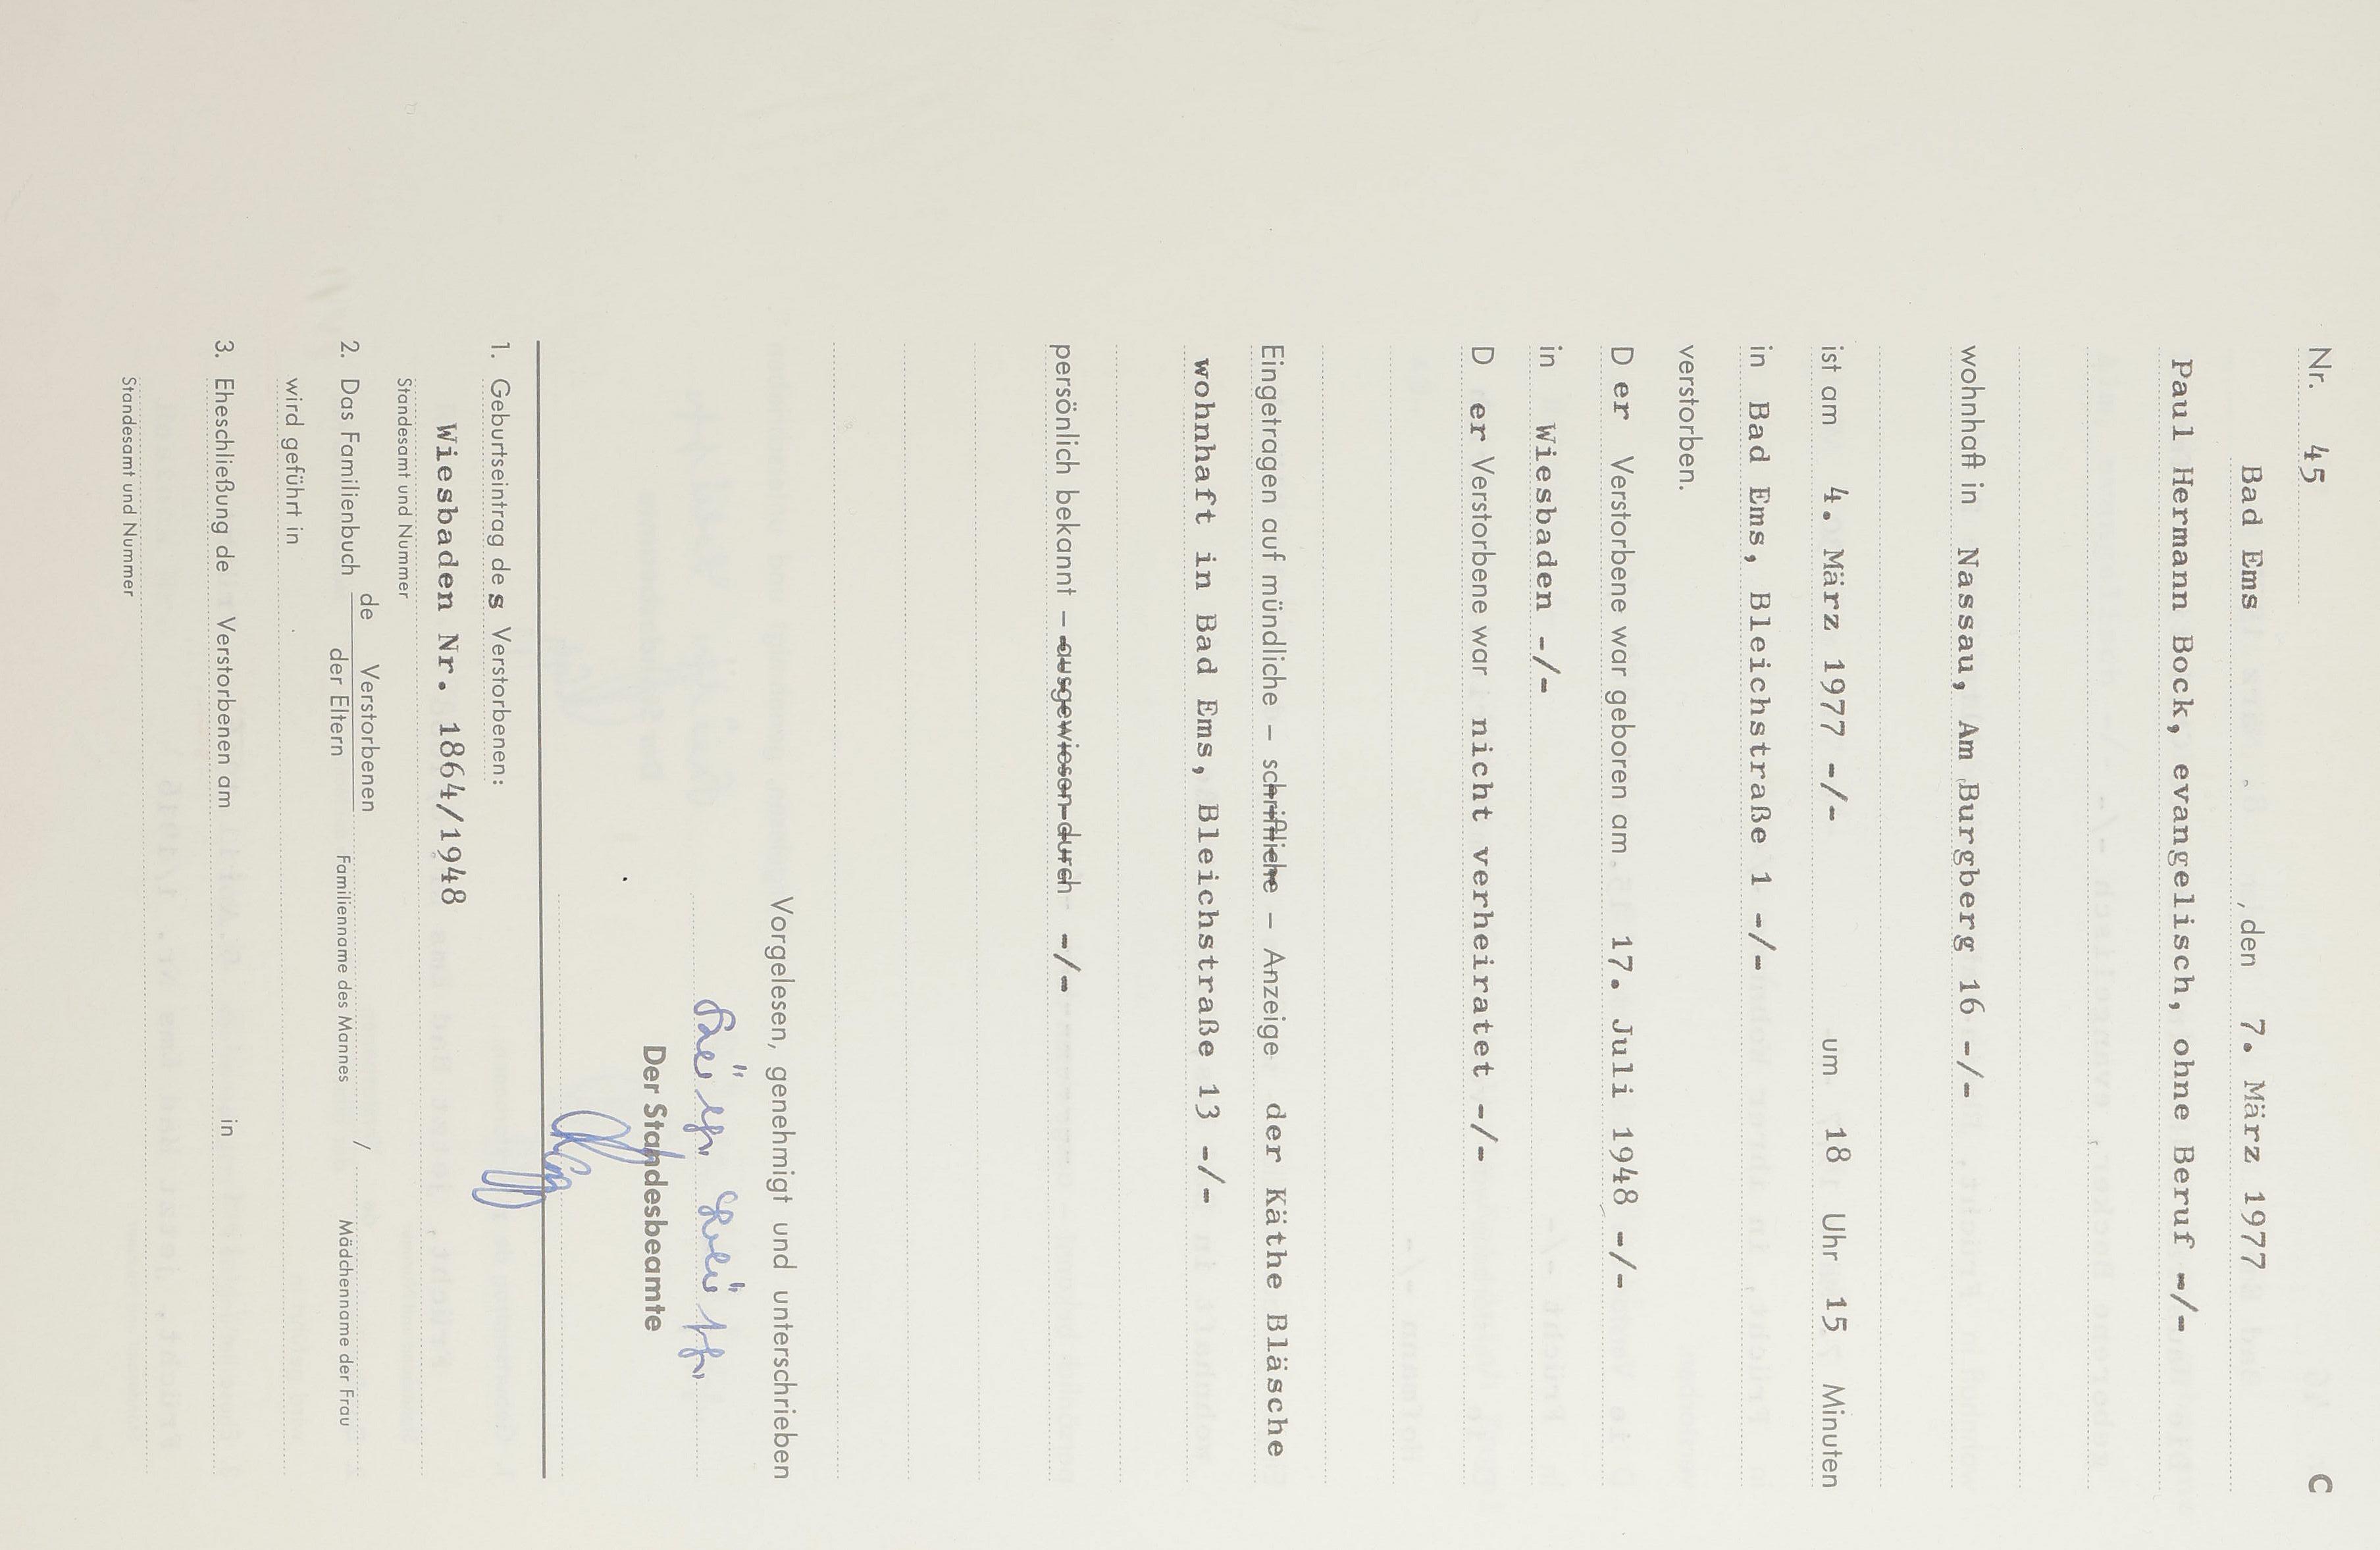 Nr. 45 C
Bad Ems , den 7. März 1977
Paul Hermann Bock, evangelisch, ohne Beruf -/-
wohnhaft in Nassau, Am Burgberg 16 -/-
ist am 4. März 1977 -/- um 18 Uhr 15 Minuten
in Bad Ems, Bleichstraße 1 -/-
verstorben.
D er Verstorbene war geboren am 17. Juli 1948 -/-
in Wiesbaden -/-
D er Verstorbene war nicht verheiratet -/-
Eingetragen auf mündliche – schriftliche – Anzeige der Käthe Bläsche
wohnhaft in Bad Ems, Bleichstraße 13 -/-
persönlich bekannt – ausgewiesen durch -/-
Vorgelesen, genehmigt und unterschrieben
Der Standesbeamte
1. Geburtseintrag des Verstorbenen:
Wiesbaden Nr. 1864/1948
Standesamt und Nummer
de Verstorbenen
2. Das Familienbuch der Eltern /
Familienname des Mannes Mädchenname der Frau
wird geführt in
3. Eheschließung de Verstorbenen am in
Standesamt und Nummer